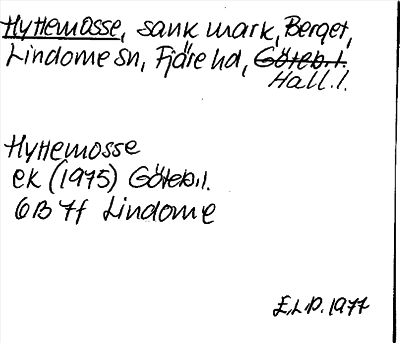 Hyttemosse, sank mark, Berget,
Lindome sn, Fjäre hd, Göteb.l.
Hall.l.
Hyttemosse
ek (1975) Göteb.l.
6B 7f Lindome
E.L.P. 1977